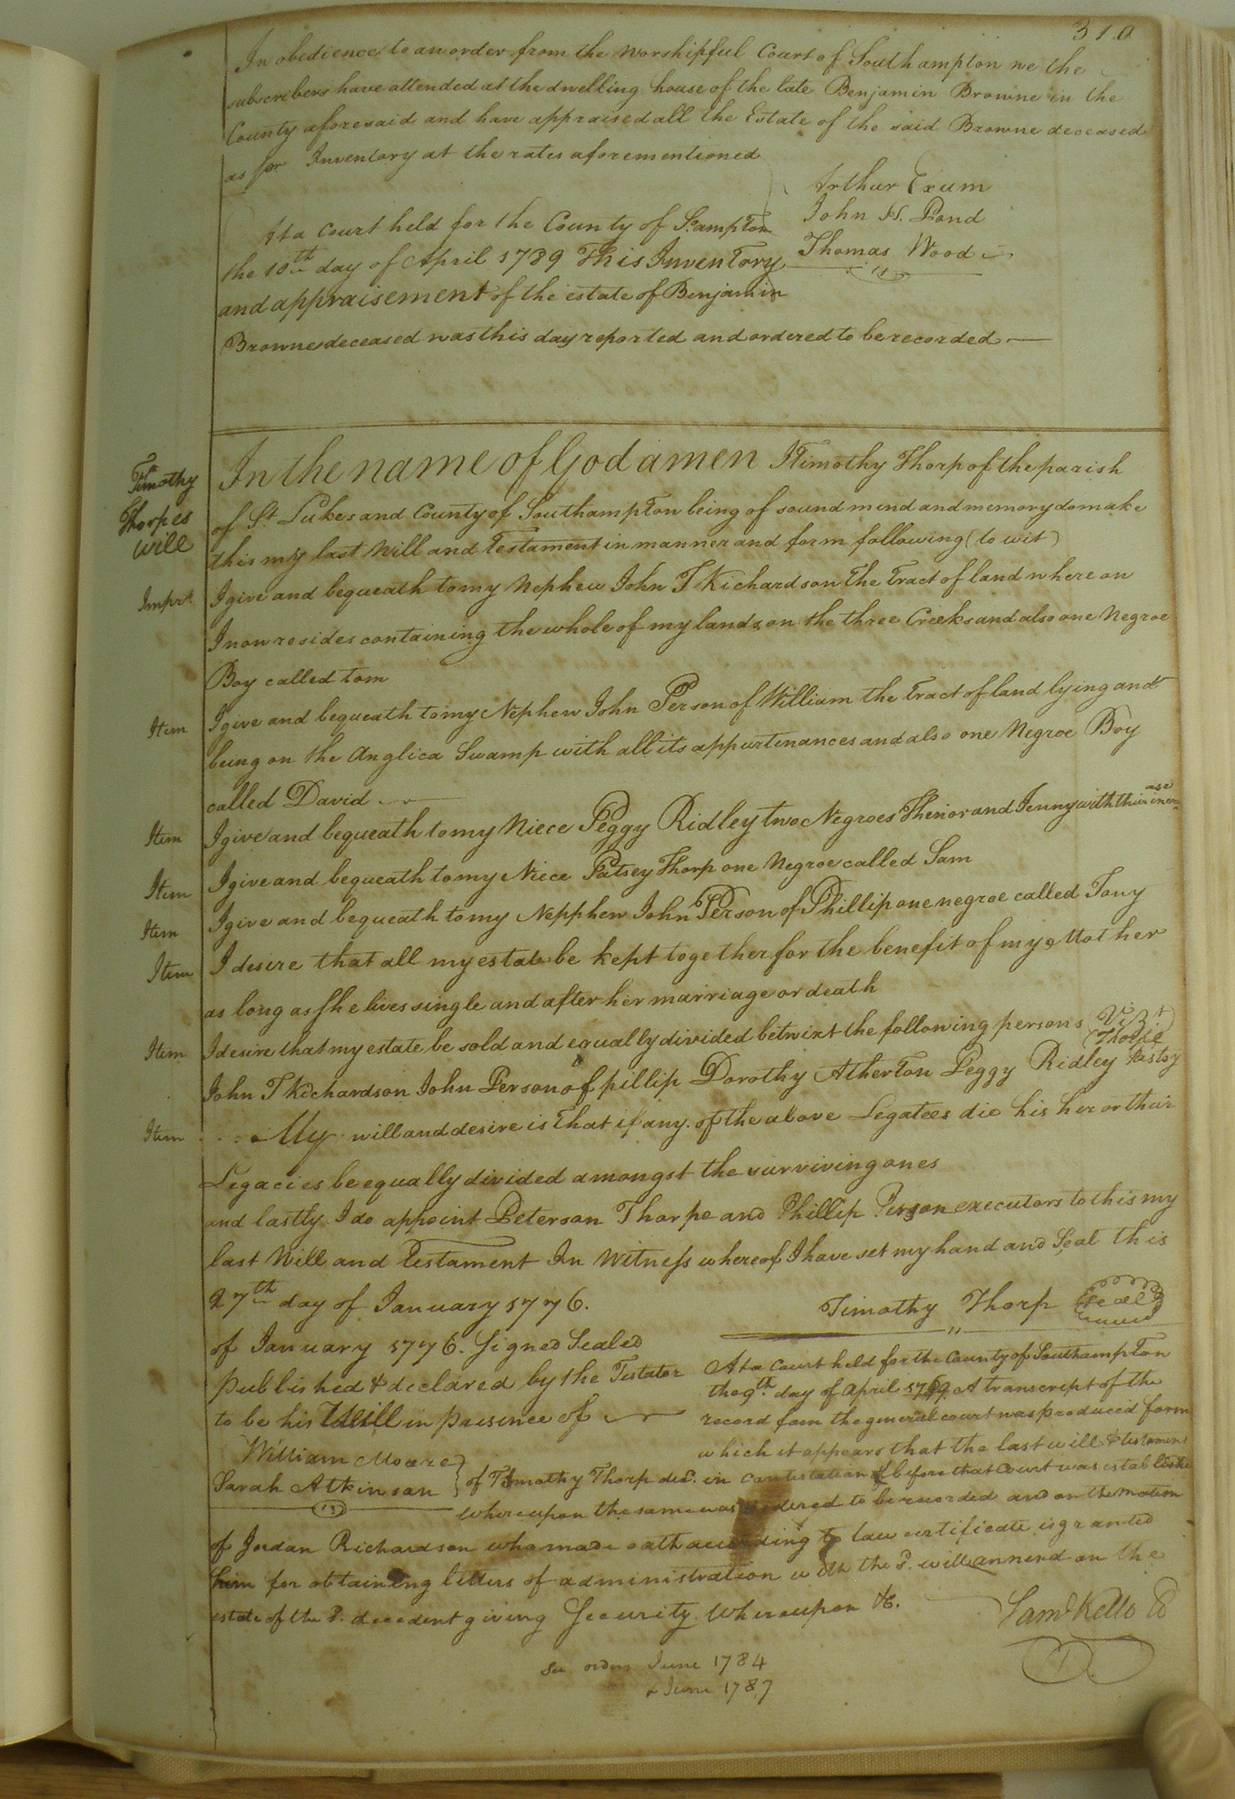 310
In obedience to an order from the worshipful Court of Southampton we the
subscribers have attended at the dwelling house of the late Benjamin Browne in the
County aforesaid and have appraised all the Estate of the said Browne deceased
as per Inventory at the rates aforementioned
Arthur Exum
John H. Pond
Thomas Wood
At a Court held for the County of S.ampton
the 10th day of April 1789 This Inventory
and appraisement of the estate of Benjamin
Browne deceased was this day reported and ordered to be recorded
Timothy
Thorpes
will
In the name of God amen I Timothy Thorp of the parish
of St Lukes and County of Southampton being of sound mind and memory do make
this my last Will and Testament in manner and form following (to wit)
Imprs I give and bequeath to my Nephew John T Richardson the Tract of land where on
I now resides containing the whole of my lands on the three Creeks and also one Negroe
Boy called tom
Item I give and bequeath to my Nephew John Person of William the Tract of land lying and
being on the Anglica Swamp with all its appurtenances and also one Negroe Boy
called David
Item I give and bequeath to my Niece Peggy Ridley two Negroes Thenor and Jenny with their increase
Item I give and bequeath to my Niece Patsey Thorp one Negroe called Sam
Item I give and bequeath to my Nepphew John Person of Phillip one negroe called Tony
Item I desire that all my estate be kept together for the benefit of my Mother
as long as she lives single and after her marriage or death
Item I desire that my estate be sold and equally divided betwixt the following persons Vizt
John T Richardson John Person of pillip Dorothy Atherton Peggy Ridley Patsy
Thorpe
Item My will and desire is that if any of the above Legatees die his her or their
Legacies be equally divided amongst the surviving ones
and lastly I do appoint Peterson Thorpe and Phillip Person executors to this my
last Will and testament In Witness whereof I have set my hand and Seal this
27th day of January 1776.
Timothy Thorp Seal
of January 1776. Signed Sealed
published & declared by the Testator
to be his Will in presence of
William Moore
Sarah Atkinson
At a Court held for the County of Southampton
the 9th day of April 1789. A transcript of the
record from the general court was produced form
which it appears that the last will & testament
of Timothy Thorp decd. in contestation before that Court was established
whereupon the same was ordered to be recorded and on the motion
of Jordan Richardson who made oath according to law certificate is granted
him for obtaining letters of administration with the sd. will annexd on the
estate of the sd. decedent giving Security Whereupon &c.
Saml Kello
See orders June 1784
& June 1787